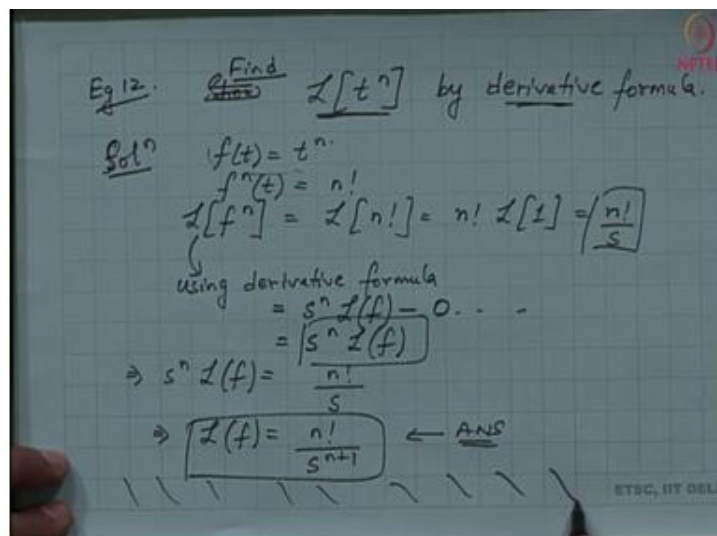 Eg 12. Find ℒ[tⁿ] by derivative formula.
NPTEL
Solⁿ f(t) = tⁿ.
fⁿ(t) = n!
ℒ[fⁿ] = ℒ[n!] = n! ℒ[1] = n!/s
using derivative formula
= sⁿ ℒ(f) - 0 . . -
= sⁿ ℒ(f)
⇒ sⁿ ℒ(f) = n!/s
⇒ ℒ(f) = n!/sⁿ⁺¹ ← ANS
ETSC, IIT DEL